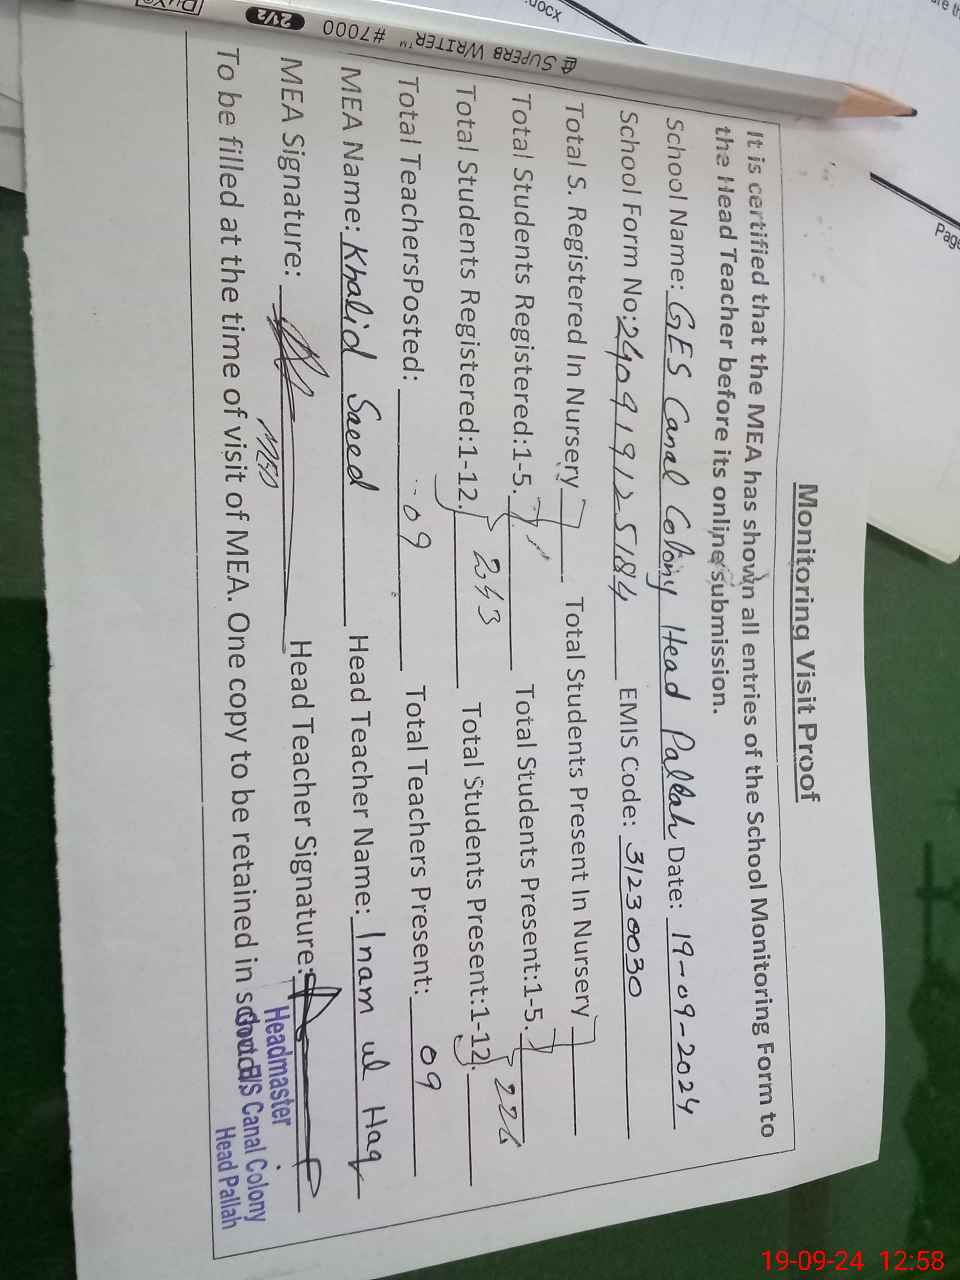 Monitoring Visit Proof
It is certified that the MEA has shown all entries of the School Monitoring Form to
the Head Teacher before its online submission.
School Name: GES Canal Colony Head Pallah Date: 19-09-2024
School Form No: 240919125184 EMIS Code: 31230030
Total S. Registered In Nursery Total Students Present In Nursery
Total Students Registered:1-5. Total Students Present:1-5.
Total Students Registered:1-12. Total Students Present:1-12.
Total TeachersPosted: 09 Total Teachers Present: 09
MEA Name: Khalid Saeed Head Teacher Name: Inam ul Haq
MEA Signature: Head Teacher Signature:
MEA
To be filled at the time of visit of MEA. One copy to be retained in
Headmaster
Canal Colony
Head Pallah
SUPERB WRITER™ #7000 2 1/2
.docx
Page
19-09-24 12:58